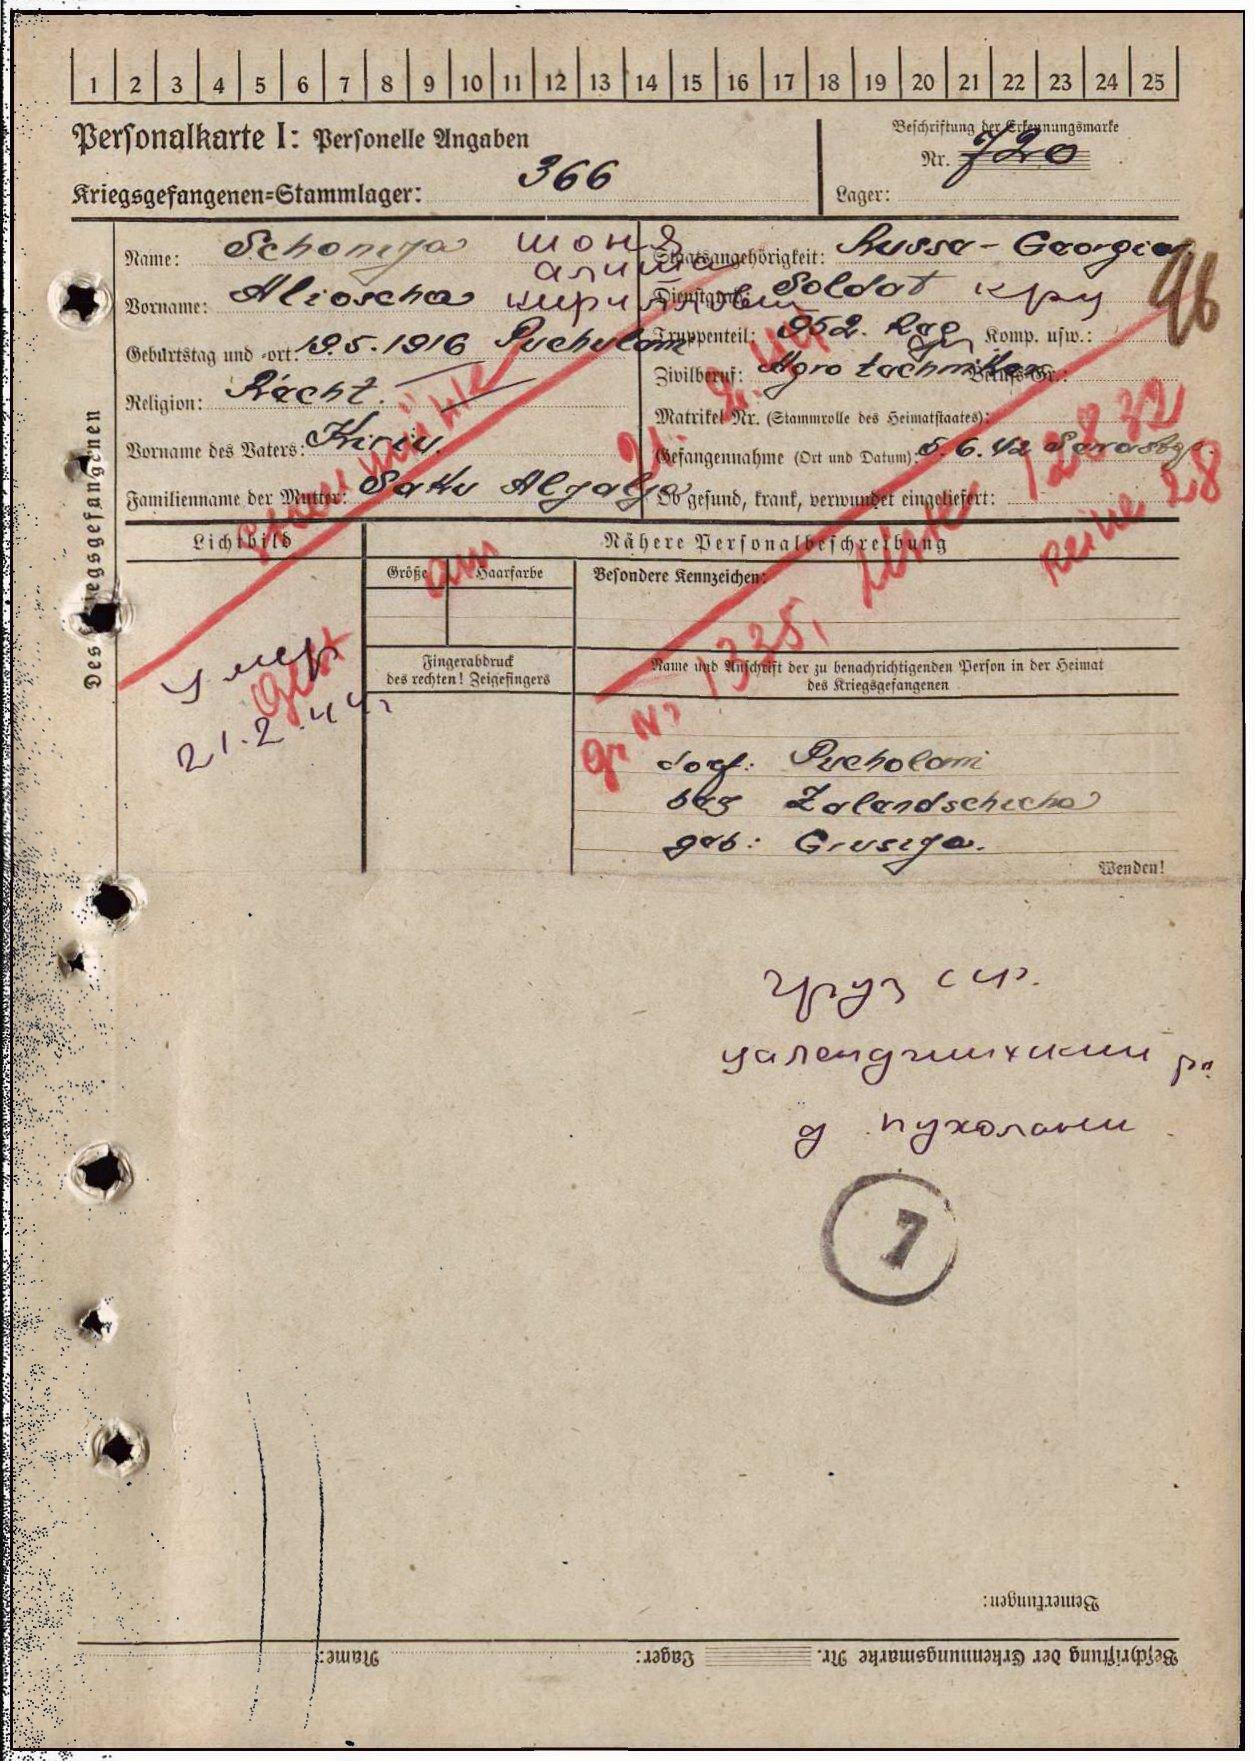 1 2 3 4 5 6 7 8 9 10 11 12 13 14 15 16 17 18 19 20 21 22 23 24 25
Personalkarte I: Personelle Angaben
Beschriftung der Erkennungsmarke
Nr. 720
Kriegsgefangenen-Stammlager: 366
Lager:
Des Kriegsgefangenen
Name: Schonija шоня
Staatsangehörigkeit: Russe - Georgier
алиоша
Vorname: Alioscha кирилович
Dienstgrad: Soldat кру
96
Geburtstag und -ort: 19.5.1916 Pucholani
Truppenteil: 952. Reg Komp. usw.:
Religion: Rächt.
Zivilberuf: Agrotächniker Berufs-Gr.:
Matrikel Nr. (Stammrolle des Heimatstaates):
Vorname des Vaters: Kiriu.
Gefangennahme (Ort und Datum): 5.6.42
Familienname der Mutter: Saku
Ob gesund, krank, verwundet eingeliefert:
am 21.2.44
Reihe 28
Lichtbild
Nähere Personalbeschreibung
Größe
Haarfarbe
Besondere Kennzeichen:
умер
gest
21.2.44г
Fingerabdruck
des rechten! Zeigefingers
Name und Anschrift der zu benachrichtigenden Person in der Heimat
des Kriegsgefangenen
gr N: 1335,
dorf: Pucholani
Zalendschicha
geb: Grusija.
Wenden!
груз сср.
цаленджихский рн
д пухолани
7
Bemerkungen:
Beschriftung der Erkennungsmarke Nr. Lager: Name: